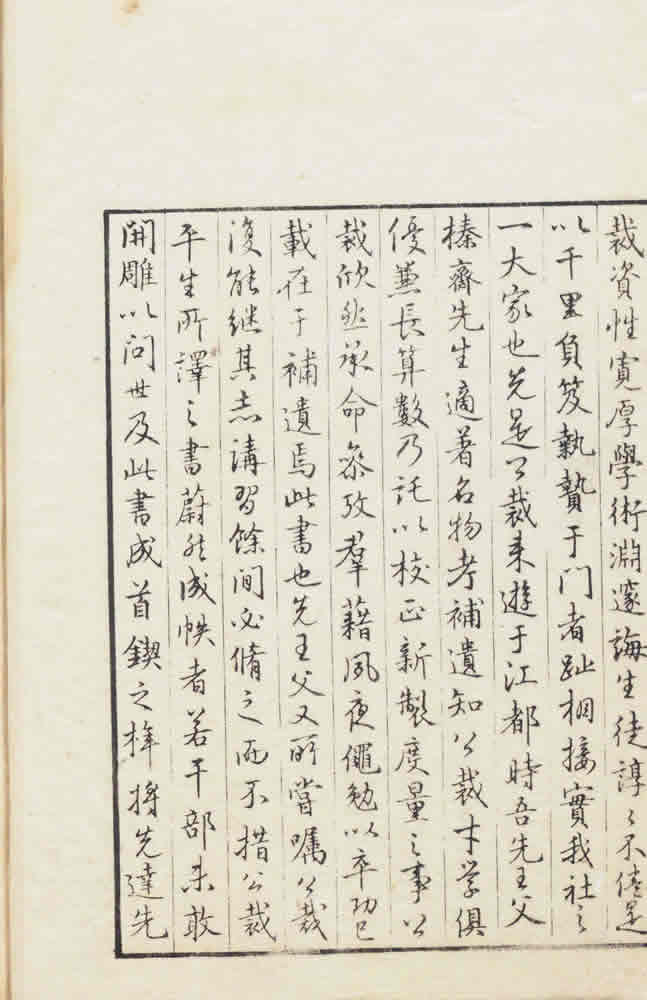 裁資性寛厚學術淵邃誨生徒諄〻不倦是
以千里負笈執贄于門者趾相接實我社之
一大家也先是公裁来遊于江都時吾先王父
榛齋先生適著名物考補遺知公裁才学俱
優兼長算數乃託以校正新製度量之事公
裁欣然承命参攷羣藉夙夜僶勉以卒功已
載在于補遺焉此書也先王父又所嘗嘱公裁
復能継其志講習餘間必脩之而不措公裁
平生所譯之書蔚然成帙者若干部未敢
開雕以問世及此書成首鍥之梓将先達先